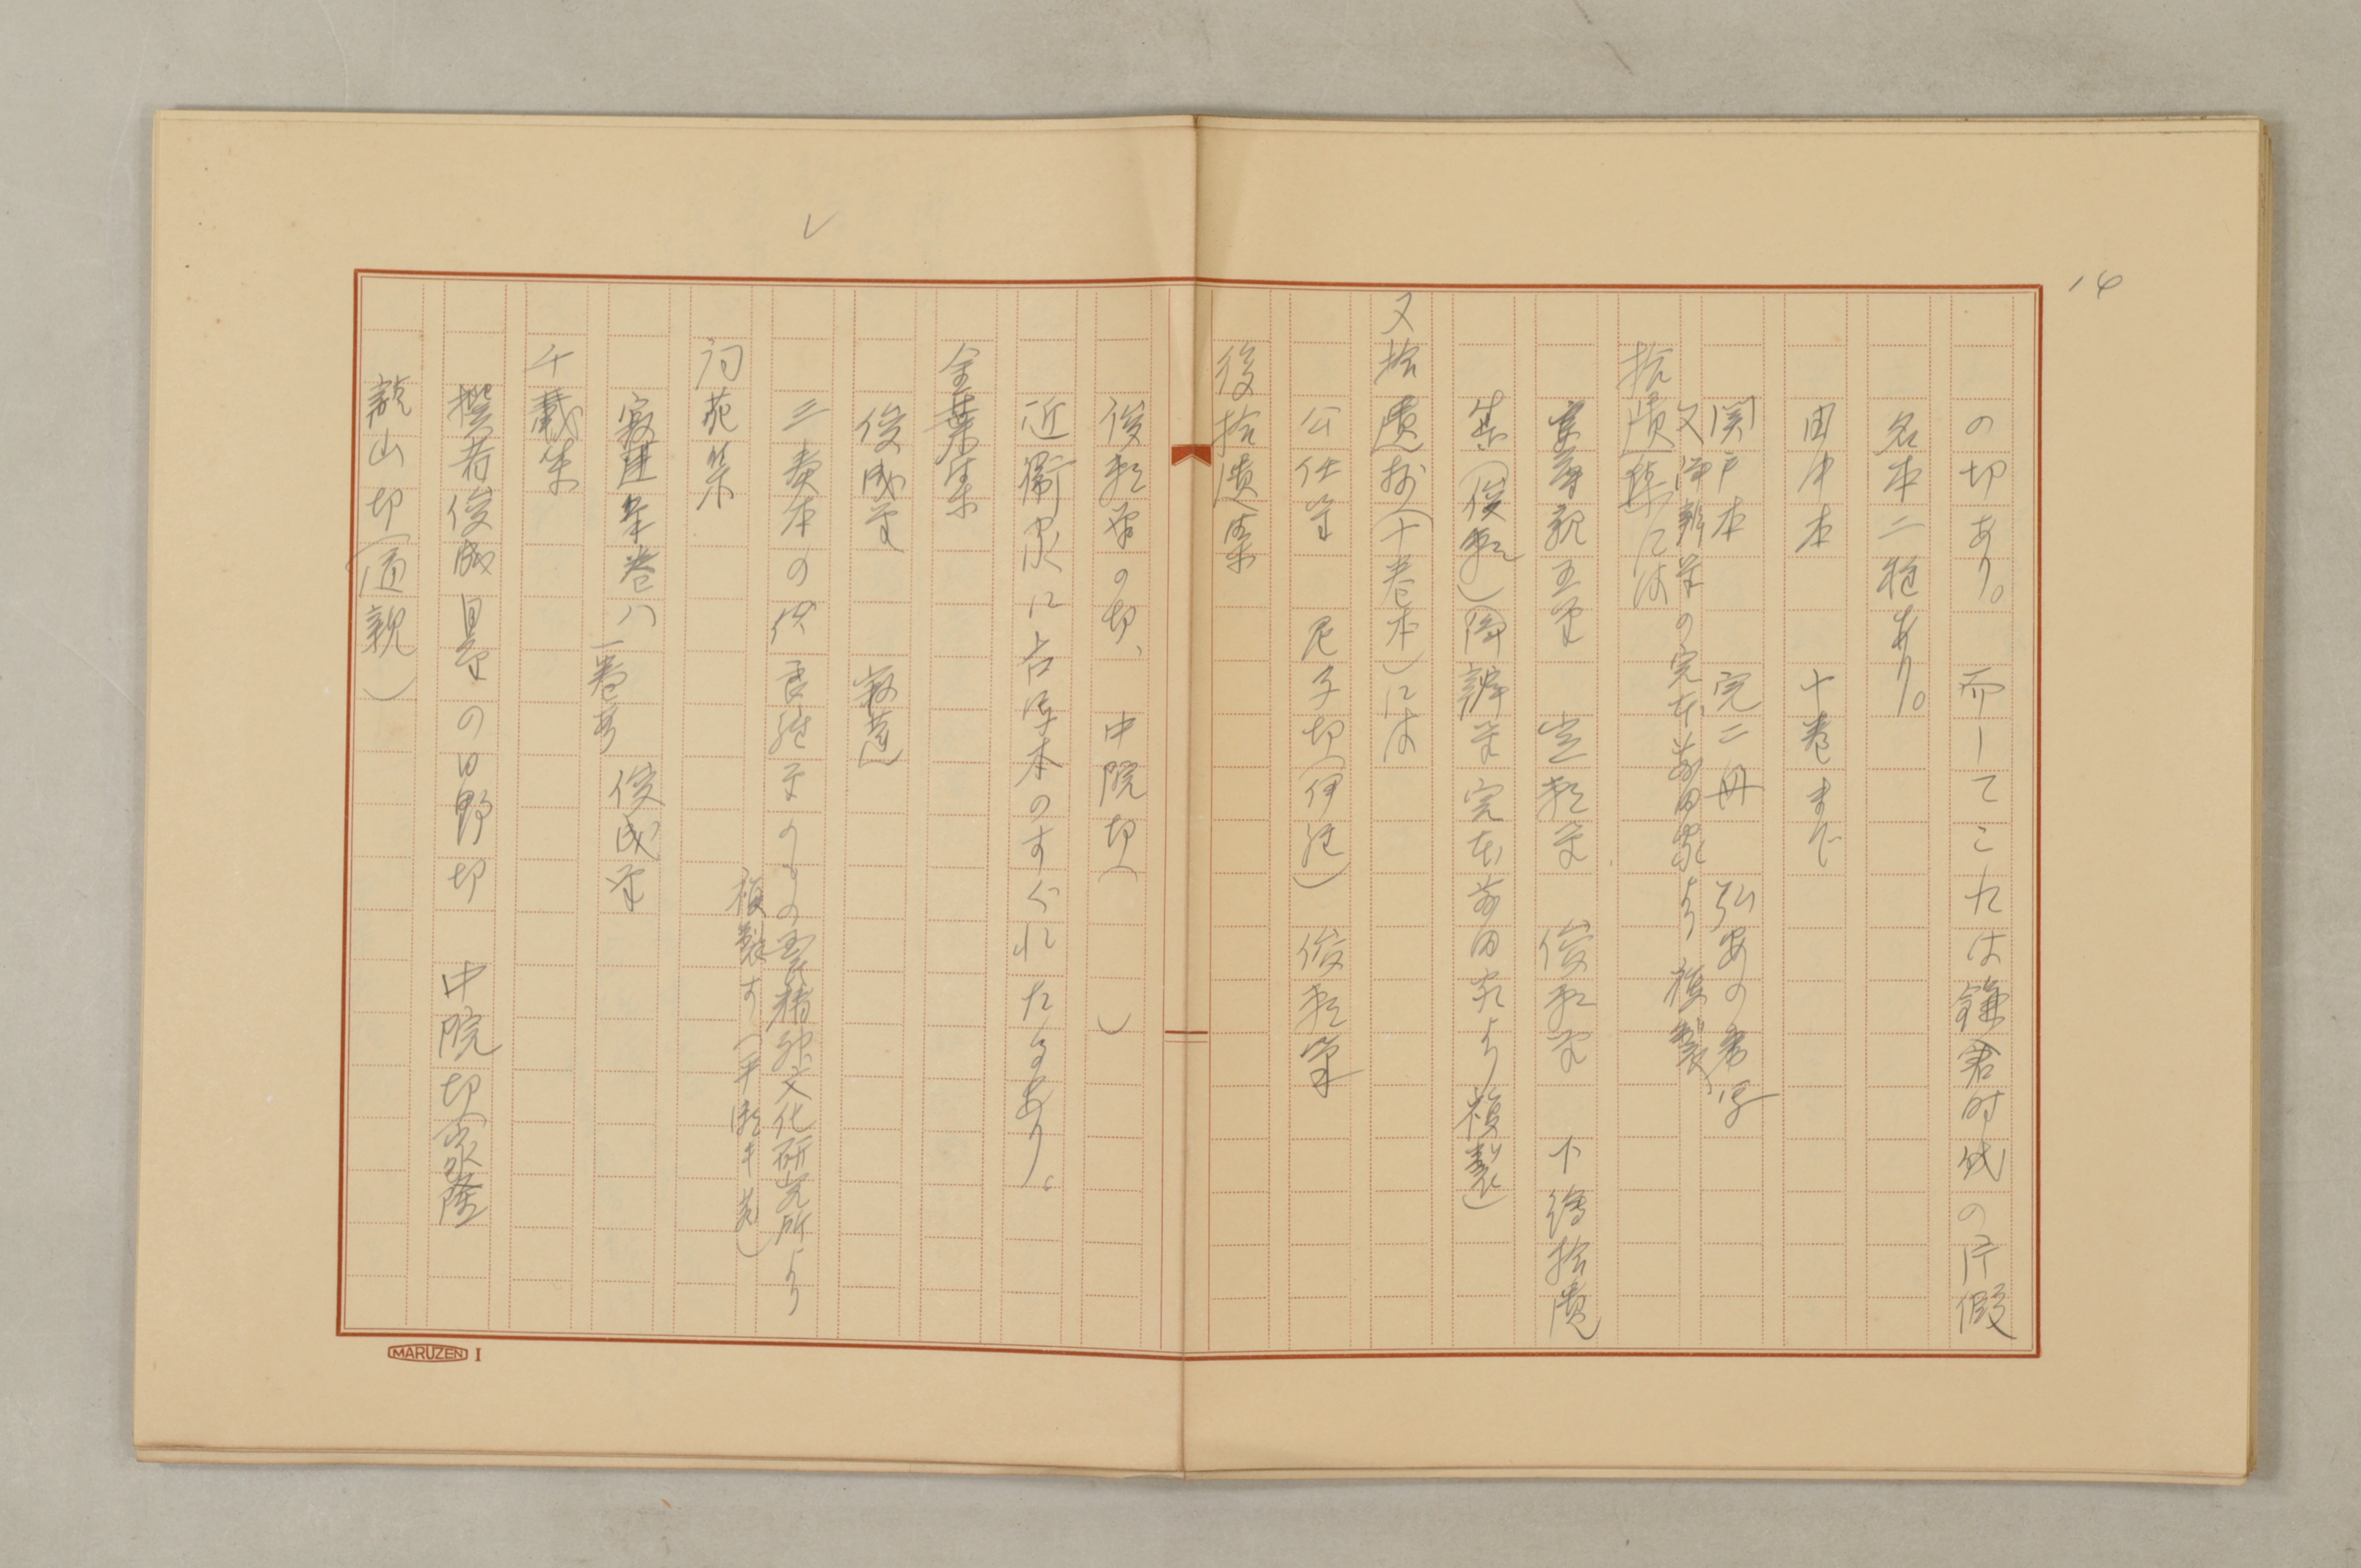 14
の切あり。 而してこれは鎌倉時代の片假
名本二種あり。
田中本 十巻まで
関戸本 完二冊 弘安の書写
又浄辨筆の完本前田家より複製
拾遺集には
家筆 定頼筆 俊頼筆 下絵拾遺
集(俊頼)(浄辨筆完本前田家より複製)
又拾遺抄(十巻本)には
公任筆 尼子切(伊経) 俊頼筆
後拾遺集
俊頼筆の切、 中院切( )
近衛家に古写本のすぐれたるあり。
金葉集
俊成筆 寂蓮
三奏本の伝良経筆のもの国民精神文化研究所より
複製す(平瀬本 )
詞花集
寂蓮筆巻八 一巻 俊成筆
千載集
撰者俊成筆の日野切 中院切(家隆
龍山切(道親)
MARUZEN I